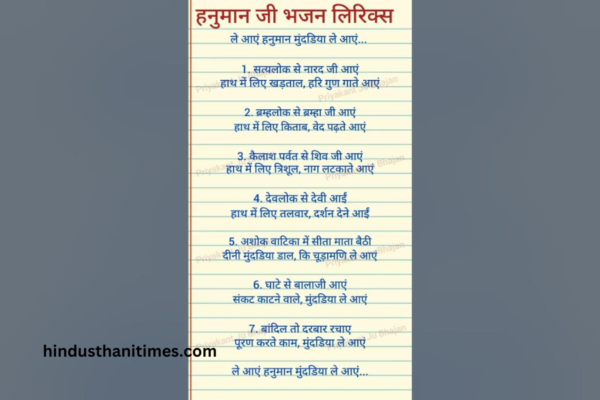 हनुमान जी भजन लिरिक्स
ले आएं हनुमान मुंदडिया ले आएं...
1. सत्यलोक से नारद जी आएं
हाथ में लिए खड़ताल, हरि गुण गाते आएं
2. ब्रम्हलोक से ब्रम्हा जी आएं
हाथ में लिए किताब, वेद पढ़ते आएं
3. कैलाश पर्वत से शिव जी आएं
हाथ में लिए त्रिशूल, नाग लटकाते आएं
4. देवलोक से देवी आईं
हाथ में लिए तलवार, दर्शन देने आईं
5. अशोक वाटिका में सीता माता बैठी
दीनी मुंदडिया डाल, कि चूड़ामणि ले आएं
6. घाटे से बालाजी आएं
संकट काटने वाले, मुंदडिया ले आएं
7. बांदिल तो दरबार रचाए
पूरण करते काम, मुंदडिया ले आएं
ले आएं हनुमान मुंदडिया ले आएं...
hindusthanitimes.com